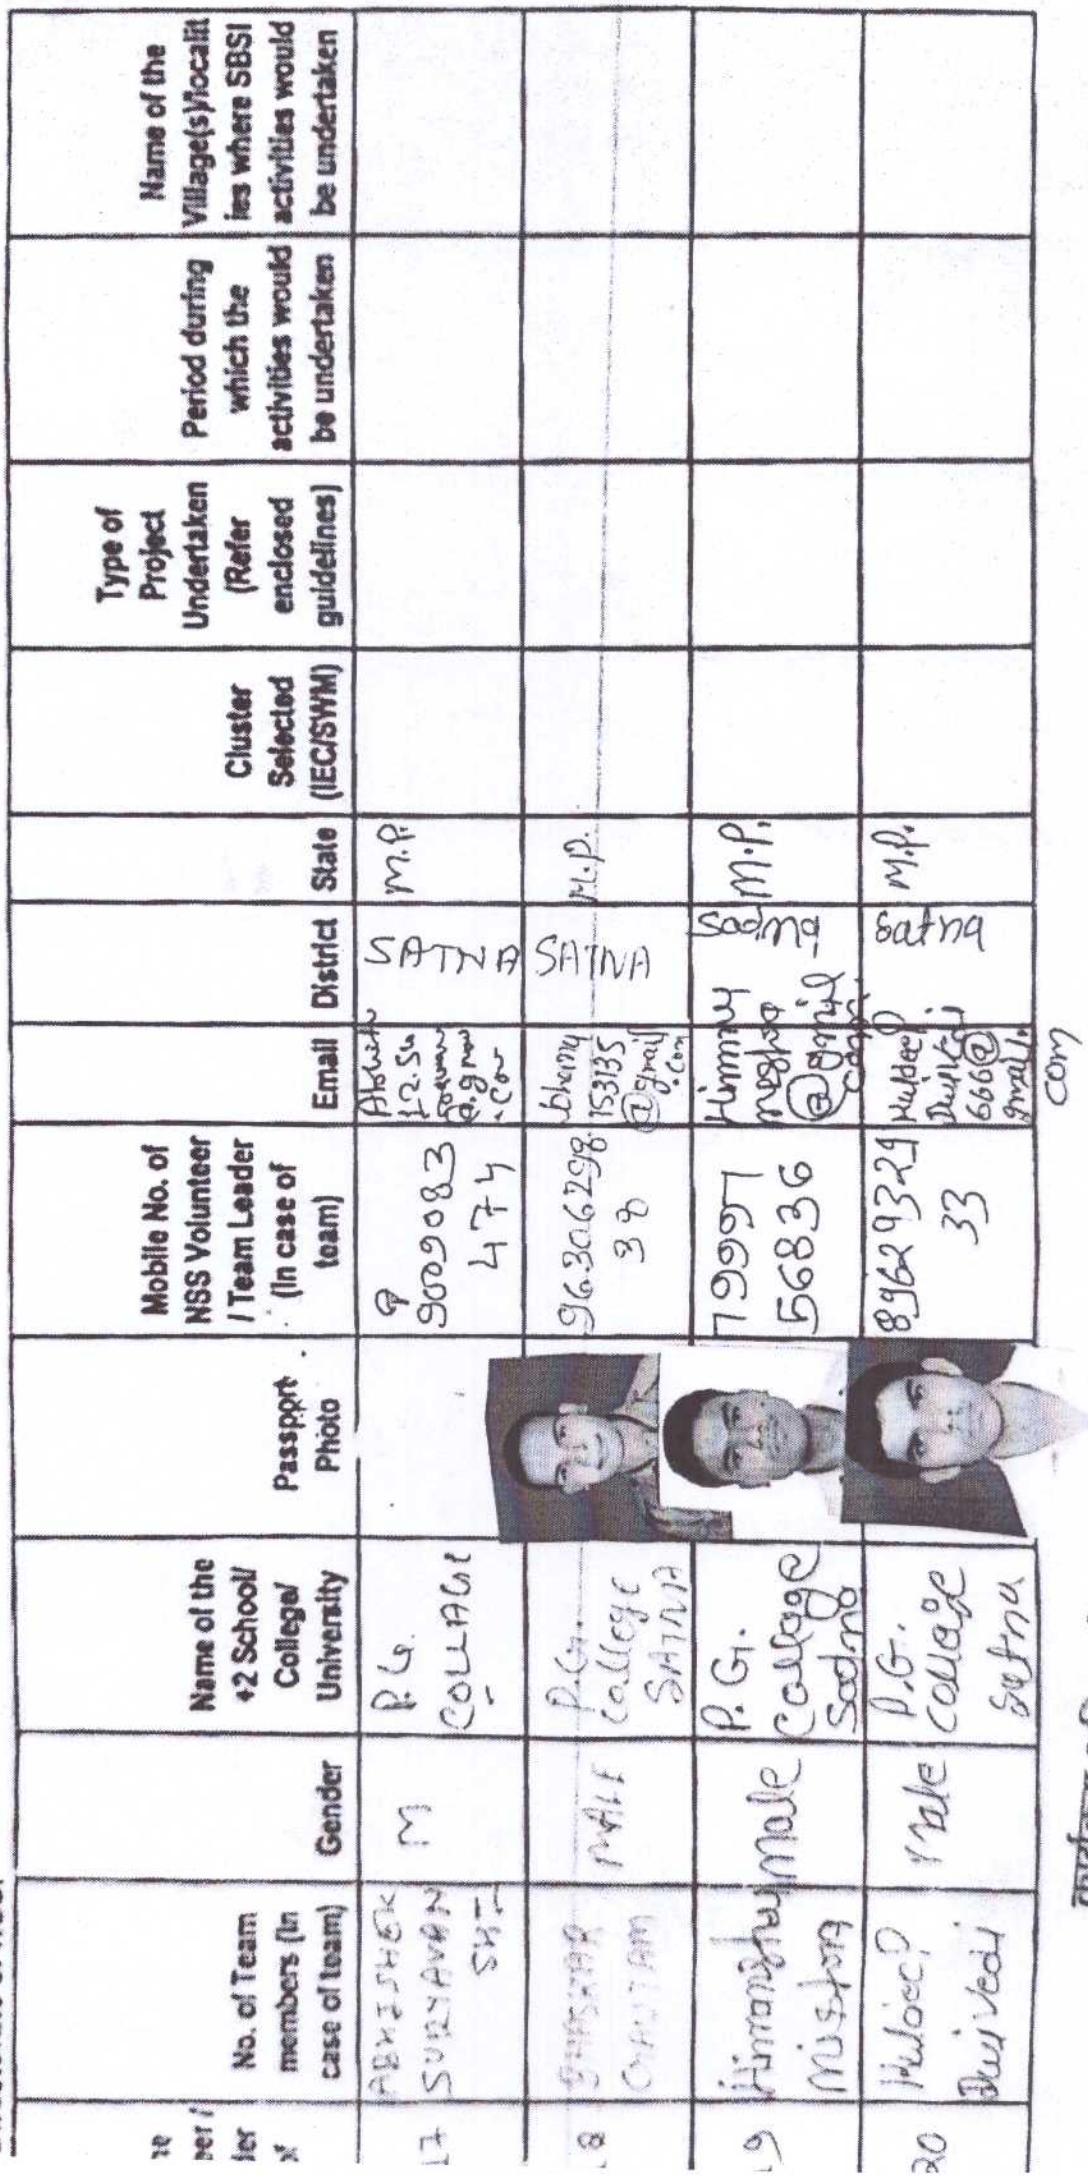 No. of Team
members (In
case of team)
Gender
Name of the
+2 School/
College/
University
Passport
Photo
Mobile No. of
NSS Volunteer
/ Team Leader
(In case of
team)
Email
District
State
Cluster
Selected
(IEC/SWM)
Type of
Project
Undertaken
(Refer
enclosed
guidelines)
Period during
which the
activities would
be undertaken
Name of the
Village(s)/localit
ies where SBSI
activities would
be undertaken
17
ABHISHEK
SURYAVAN
SHI
M
P.G.
COLLAGE
9009083
474
SATNA
M.P.
18
BHASKAR
GAUTAM
MALE
P.G.
College
SATNA
96306298
38
153135
@gmail
.com
SATNA
M.P.
19
Himanshu
Mishra
male
P.G.
College
79997
56836
M.P.
20
Dwivedi
male
P.G.
Satna
89629329
33
Dwivedi
666@
gmail.
com
Satna
M.P.